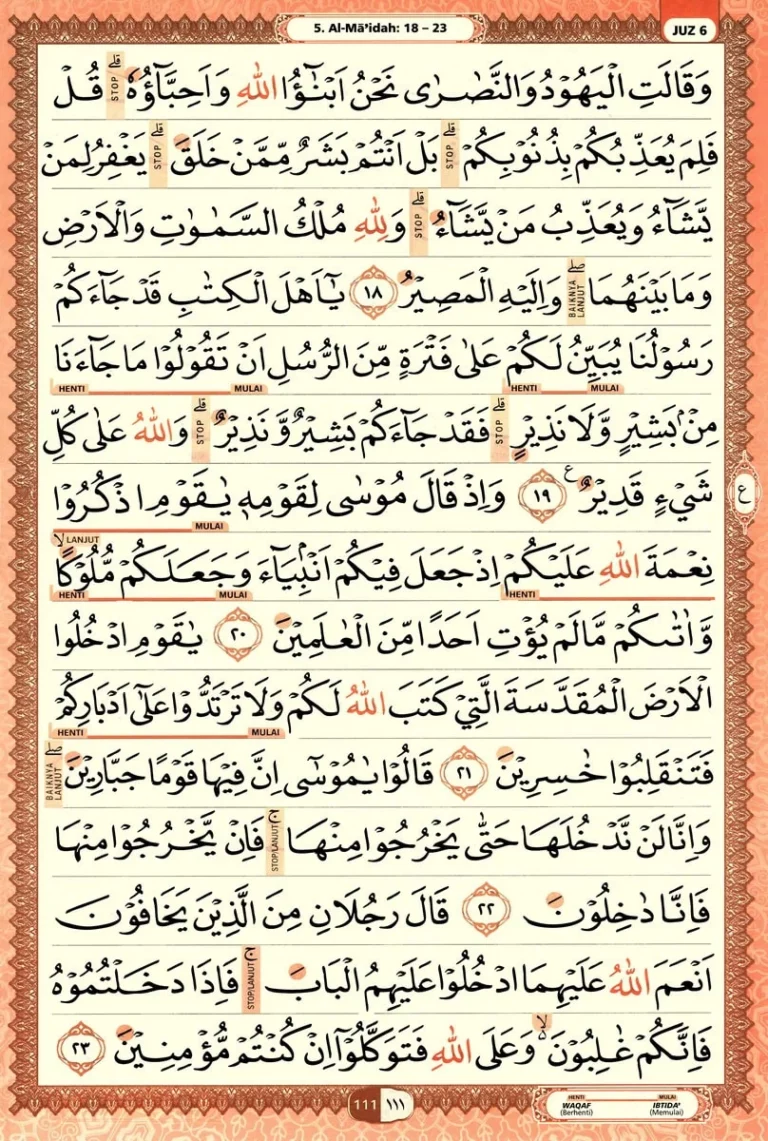 5. Al-Mā’idah: 18 – 23
JUZ 6
وَقَالَتِ الْيَهُوْدُ وَالنَّصٰرٰى نَحْنُ اَبْنٰۤؤُا اللّٰهِ وَاَحِبَّاۤؤُهٗ ۗ قُلْ
STOP
فَلِمَ يُعَذِّبُكُمْ بِذُنُوْبِكُمْ ۗ بَلْ اَنْتُمْ بَشَرٌ مِّمَّنْ خَلَقَ ۗ يَغْفِرُ لِمَنْ
STOP STOP
يَّشَاۤءُ وَيُعَذِّبُ مَنْ يَّشَاۤءُ ۗ وَلِلّٰهِ مُلْكُ السَّمٰوٰتِ وَالْاَرْضِ
STOP
وَمَا بَيْنَهُمَا ۖ وَاِلَيْهِ الْمَصِيْرُ ١٨ يٰٓاَهْلَ الْكِتٰبِ قَدْ جَاۤءَكُمْ
BAIKNYA LANJUT
رَسُوْلُنَا يُبَيِّنُ لَكُمْ عَلٰى فَتْرَةٍ مِّنَ الرُّسُلِ اَنْ تَقُوْلُوْا مَا جَاۤءَنَا
HENTI MULAI HENTI MULAI
مِنْۢ بَشِيْرٍ وَّلَا نَذِيْرٍ ۗ فَقَدْ جَاۤءَكُمْ بَشِيْرٌ وَّنَذِيْرٌ ۗ وَاللّٰهُ عَلٰى كُلِّ
STOP STOP
شَيْءٍ قَدِيْرٌ ١٩ ع وَاِذْ قَالَ مُوْسٰى لِقَوْمِهٖ يٰقَوْمِ اذْكُرُوْا
ع
MULAI
LANJUT
نِعْمَةَ اللّٰهِ عَلَيْكُمْ اِذْ جَعَلَ فِيْكُمْ اَنْۢبِيَاۤءَ وَجَعَلَكُمْ مُّلُوْكًا ۙ
HENTI MULAI HENTI
وَّاٰتٰىكُمْ مَّا لَمْ يُؤْتِ اَحَدًا مِّنَ الْعٰلَمِيْنَ ٢٠ يٰقَوْمِ ادْخُلُوا
الْاَرْضَ الْمُقَدَّسَةَ الَّتِيْ كَتَبَ اللّٰهُ لَكُمْ وَلَا تَرْتَدُّوْا عَلٰٓى اَدْبَارِكُمْ
HENTI MULAI
فَتَنْقَلِبُوْا خٰسِرِيْنَ ٢١ قَالُوْا يٰمُوْسٰٓى اِنَّ فِيْهَا قَوْمًا جَبَّارِيْنَ ۖ
BAIKNYA LANJUT
وَاِنَّا لَنْ نَّدْخُلَهَا حَتّٰى يَخْرُجُوْا مِنْهَا ۚ فَاِنْ يَّخْرُجُوْا مِنْهَا
STOP/LANJUT
فَاِنَّا دٰخِلُوْنَ ٢٢ قَالَ رَجُلَانِ مِنَ الَّذِيْنَ يَخَافُوْنَ
اَنْعَمَ اللّٰهُ عَلَيْهِمَا ادْخُلُوْا عَلَيْهِمُ الْبَابَ ۚ فَاِذَا دَخَلْتُمُوْهُ
STOP/LANJUT
فَاِنَّكُمْ غٰلِبُوْنَ ۙ وَعَلَى اللّٰهِ فَتَوَكَّلُوْٓا اِنْ كُنْتُمْ مُّؤْمِنِيْنَ ٢٣
111 ١١١
HENTI MULAI
WAQAF IBTIDA'
(Berhenti) (Memulai)